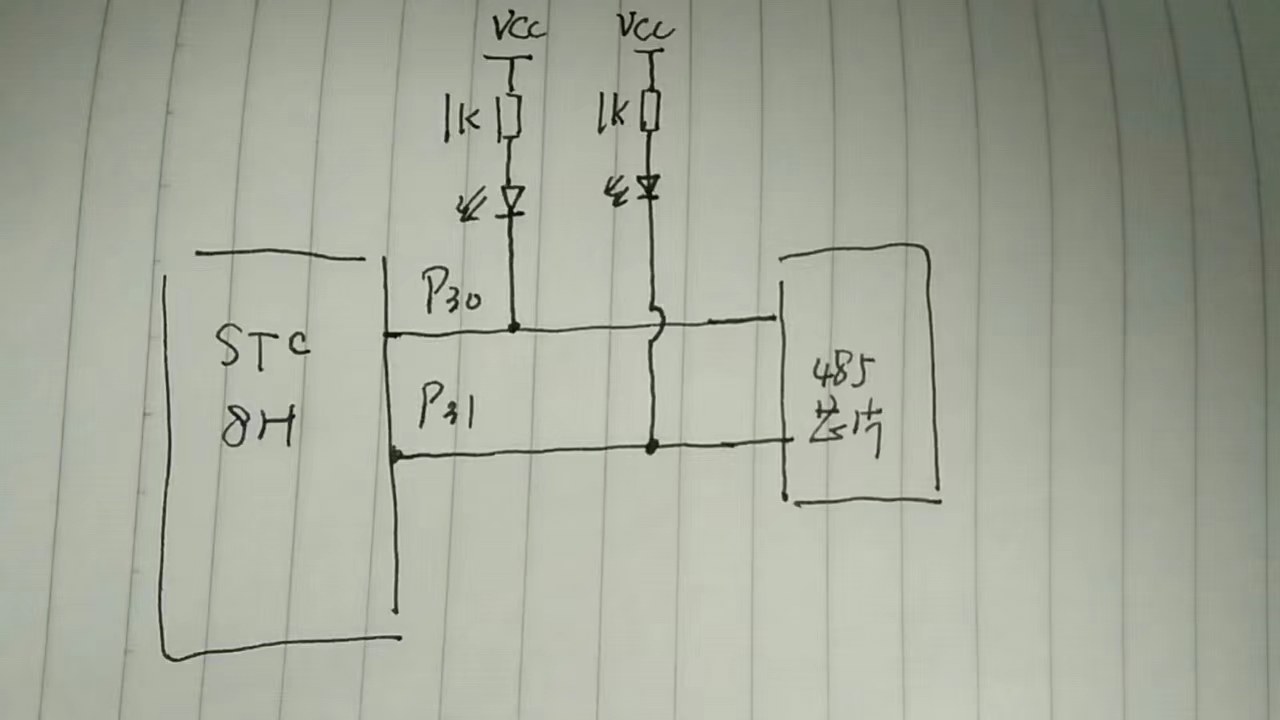 VCC
VCC
1K
1K
P30
STC
8H
P31
485
芯片